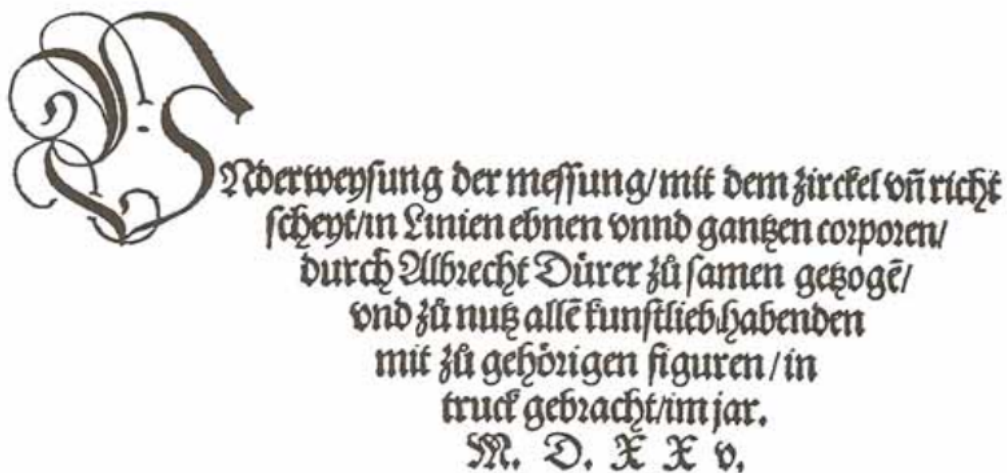 VNderweysung der messung/mit dem zirckel vñ richt
scheyt/in Linien ebnen vnnd gantzen corporen/
durch Albrecht Dürer zů samen getzogẽ/
vnd zů nutz allẽ kunstlieb habenden
mit zů gehörigen figuren/in
truck gebracht/im jar.
M. D. X X v.